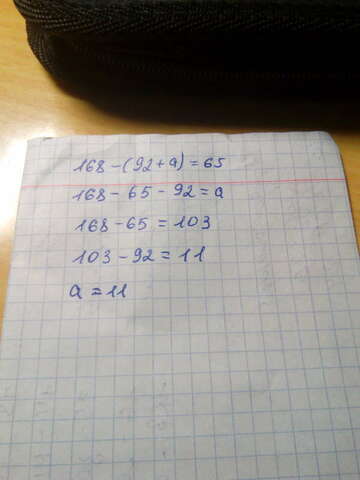 168-(92+a)=65
168-65-92=a
168-65=103
103-92=11
a=11